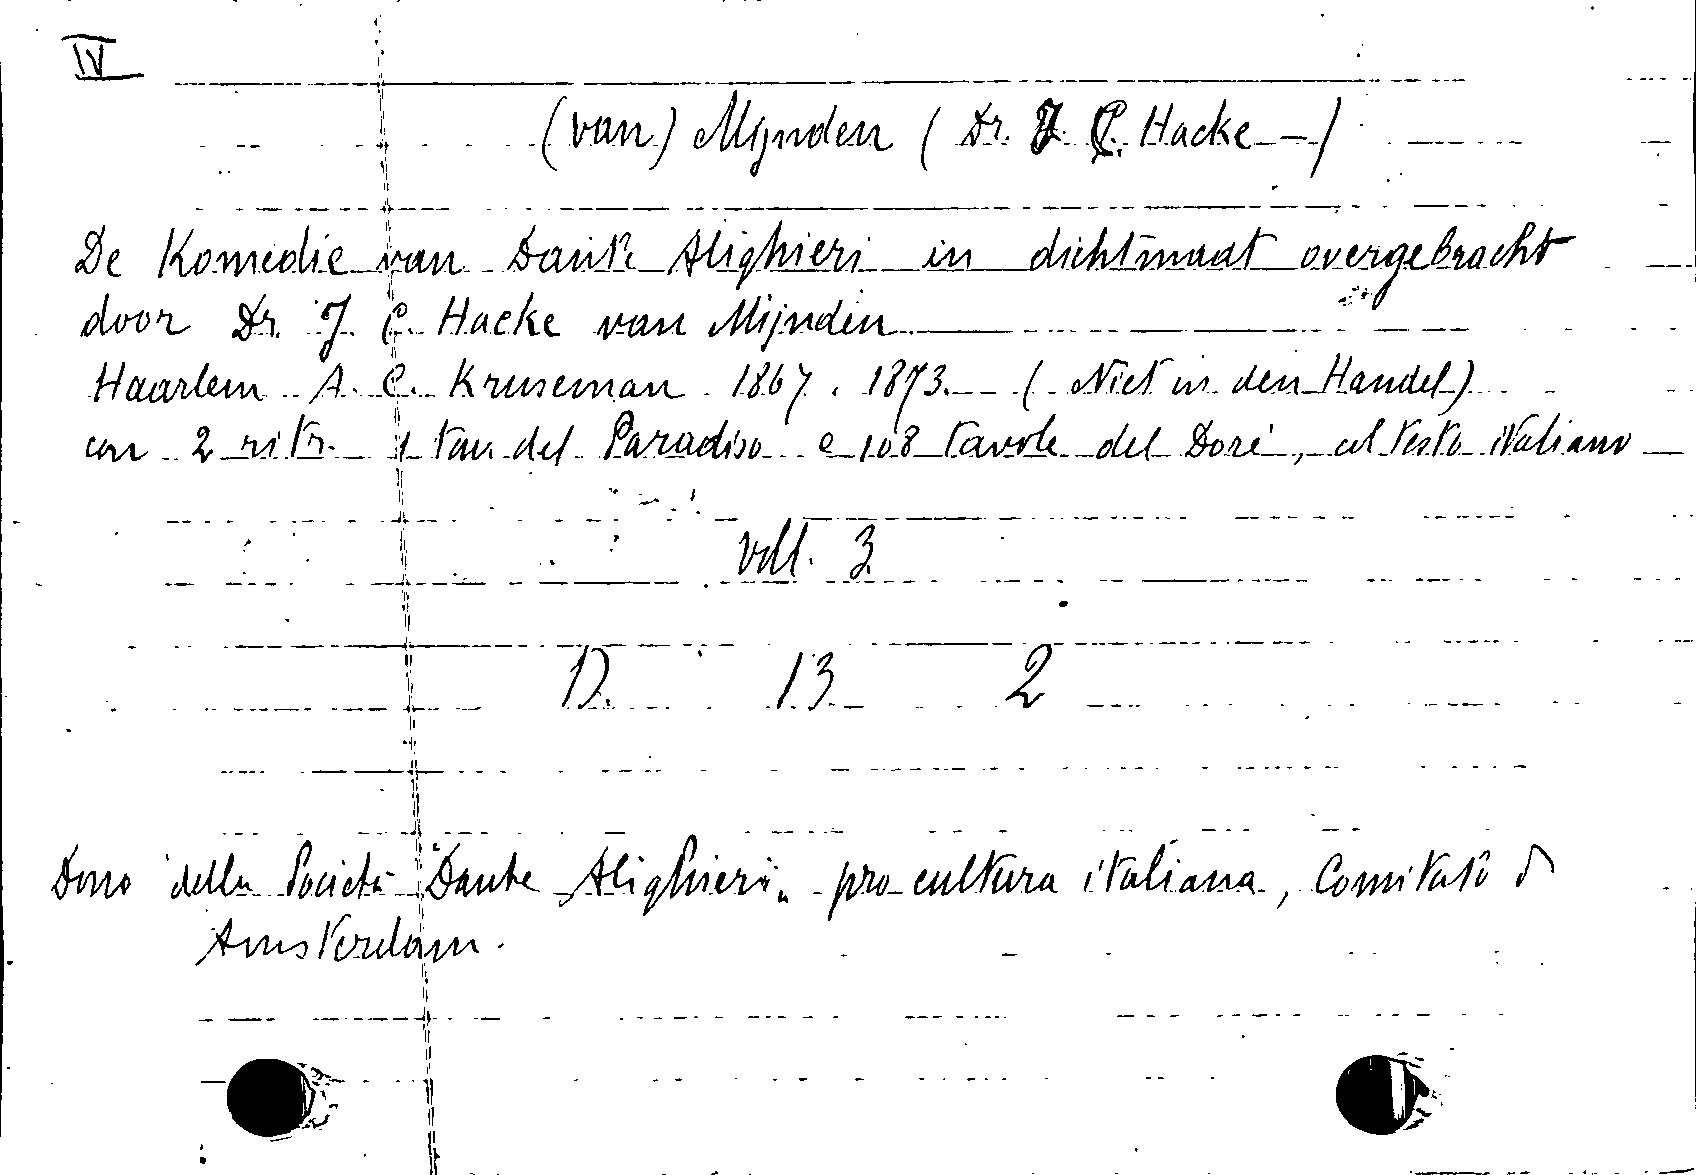 IV
(van) Mijnden ( Dr. J. C. Hacke — )
De Komedie van Dante Alighieri in dichtmaat overgebracht
door Dr. J. C. Hacke van Mijnden
Haarlem A. C. Kruseman 1867. 1873. ( Niet in den Handel)
con 2 ritr. 1 tav del Paradiso e 108 tavole del Doré, col testo italiano
voll. 3
D. 13 2
Dono della Società "Dante Alighieri" pro cultura italiana, Comitato di
Amsterdam.